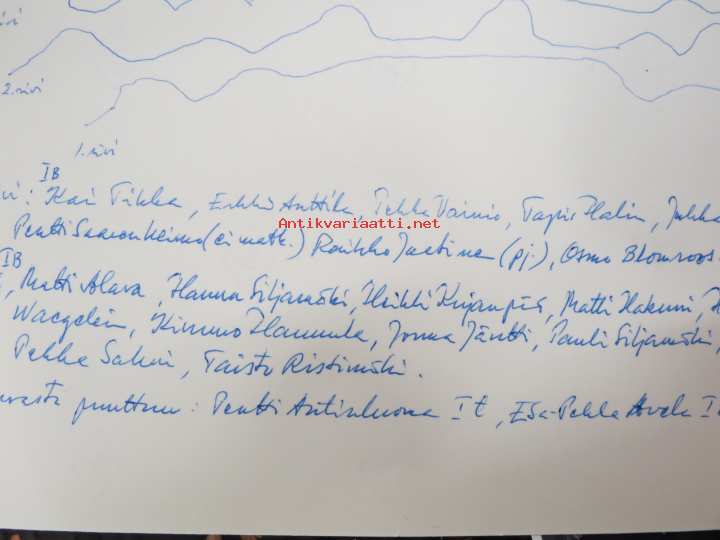 rivi
2. rivi
1. rivi
IB
ivi: Kai Tikka, Erkki Anttila, Pekka Vainio, Tapio Halin, Jukka
Antikvariaatti.net
Pentti Saarenheimo (ei matk.) Raikko Jaatinen (pj), Osmo Blomroos
IB
, Matti Alava, Hannu Siljamäki, Heikki Kujanpää, Matti Hakuni, H
Waegelein, Kimmo Hannula, Jorma Jäntti, Pauli Siljamäki,
Pekka Salmi, Taisto Ristimäki.
uvasta puuttuu: Pentti Antinluoma It, Esa-Pekka Avela I